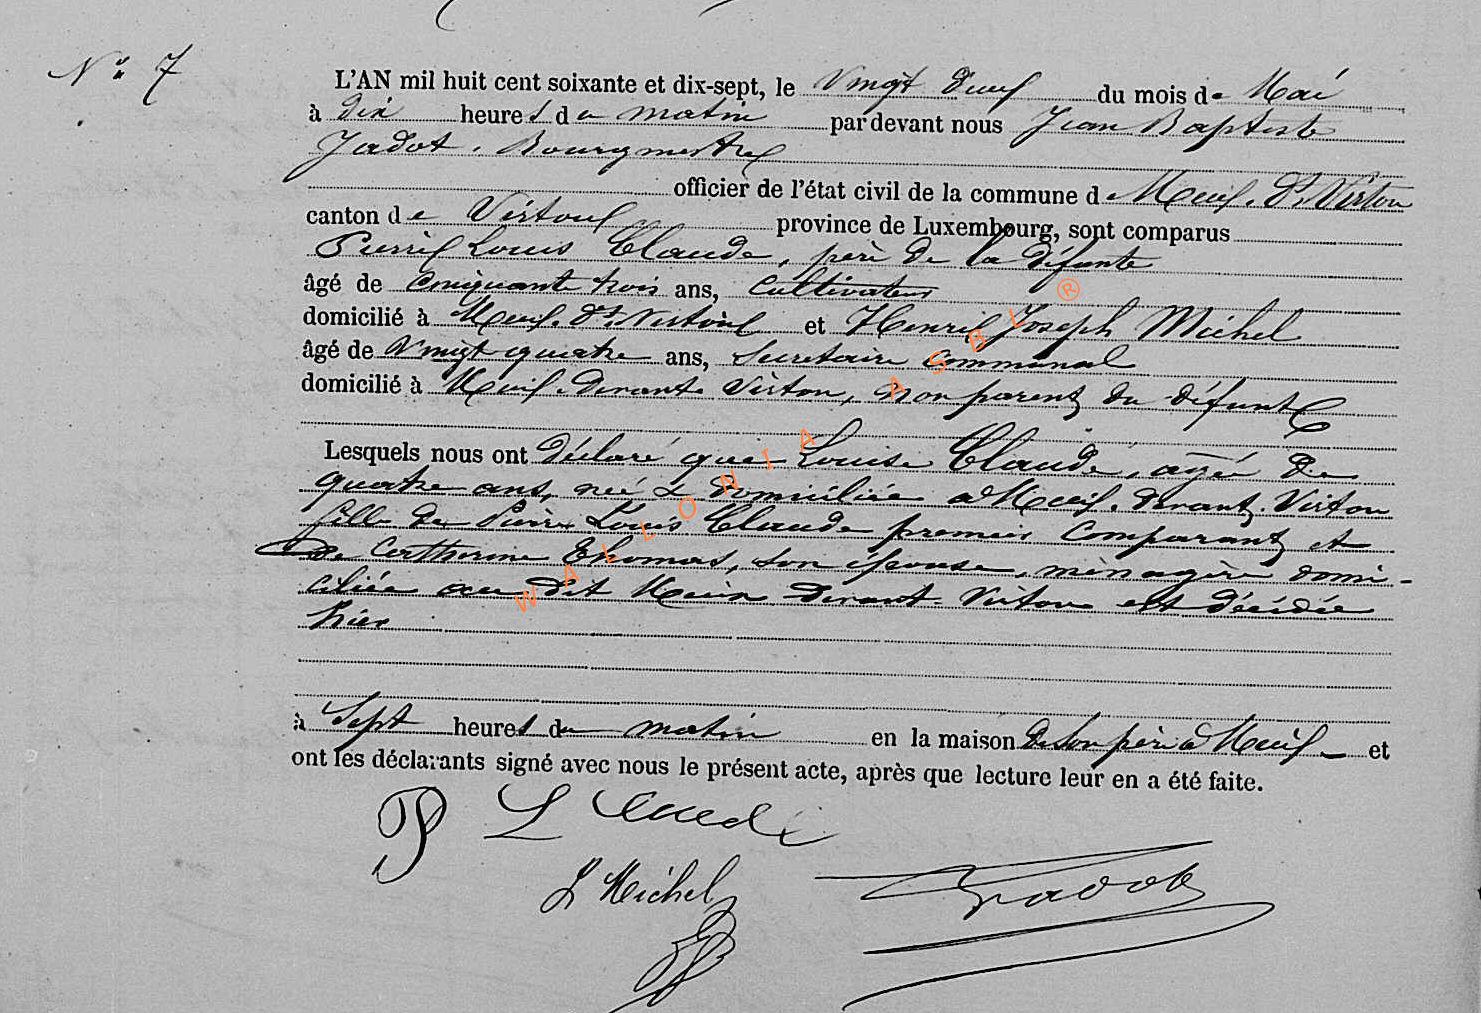 N° 7
L'AN mil huit cent soixante et dix-sept, le Vingt Deux du mois de Mai
à dix heures du matin par devant nous Jean Baptiste
Jadot, Bourgmestre
officier de l'état civil de la commune de Meix-Dt-Virton
canton de Virton province de Luxembourg, sont comparus
Pierre Louis Claude, père de la défunte
âgé de Cinquante trois ans, Cultivateur
domicilié à Meix-Dt-Virton et Henri Joseph Michel
âgé de Vingt quatre ans, Secretaire communal
domicilié à Meix-Devant-Virton, non parent du défunt
Lesquels nous ont déclaré que Louise Claude, agée de
quatre ans, née & domiciliée à Meix-devant-Virton
fille de Pierre Louis Claude premier Comparant et
de Catherine Thomas, son épouse, ménagère domi-
ciliée au dit Meix Devant-Virton est décédée
hier
à Sept heures du matin en la maison de son père à Meix et
ont les déclarants signé avec nous le présent acte, après que lecture leur en a été faite.
P L Claude
H Michel Jadot
WALLONIA ASBL ®